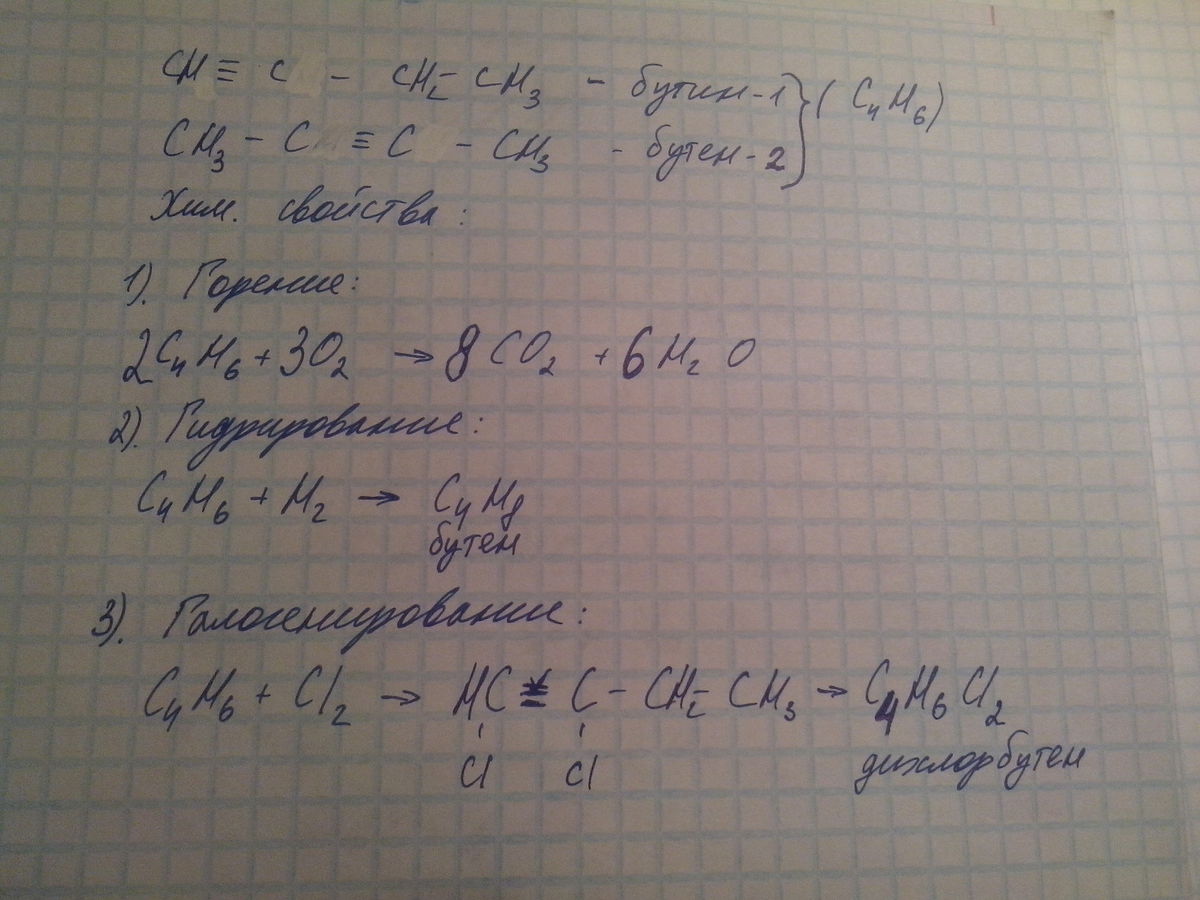 CH ≡ C - CH₂ - CH₃ - бутин-1 } (C₄H₆)
CH₃ - C ≡ C - CH₃ - бутен-2
Хим. свойства:
1). Горение:
2C₄H₆ + 3O₂ → 8CO₂ + 6H₂O
2). Гидрирование:
C₄H₆ + H₂ → C₄H₈
бутен
3). Галогенирование:
C₄H₆ + Cl₂ → HC = C - CH₂ - CH₃ → C₄H₆Cl₂
Cl Cl дихлорбутен